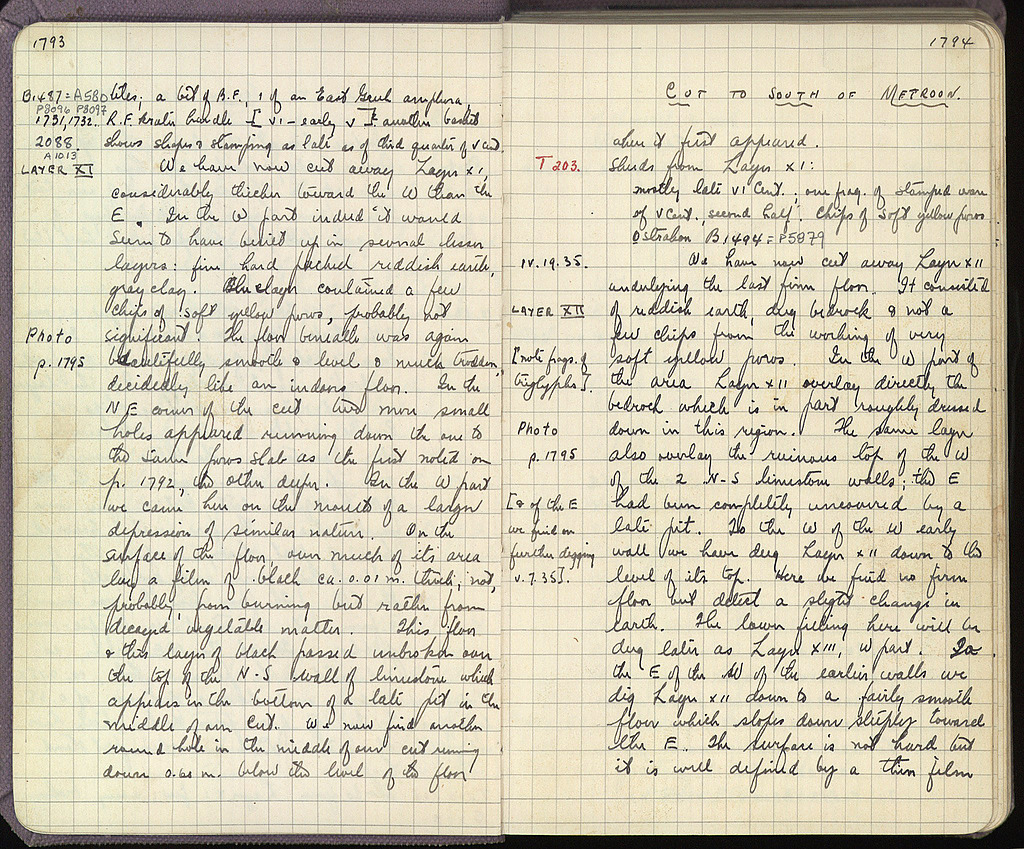 1793
B1487=A580 tiles; a bit of B.F., 1 of an East Greek amphora,
P8096 P8097
1731, 1732. R.F. krater handle [VI - early V]: another basket
2088 shows shapes & stamping as late as of third quarter of V cent
A1013
LAYER XI We have now cut away Layer XI,
considerably thicker toward the W than the
E. In the W part indeed it would
seem to have been built up in several lesser
layers: fine, hard packed reddish earth,
gray clay. The layer contained a few
chips of soft yellow poros, probably not
Photo significant. The floor beneath was again
p. 1795 beautifully smooth & level & much trodden,
decidedly like an indoors floor. In the
NE corner of the cut two more small
holes appeared running down the one to
the same poros slab as the first noted on
p. 1792, the other deeper. In the W part
we came here on the mouth of a larger
depression of similar nature. On the
surface of the floor over much of its area
lay a film of black ca. 0.01 m. thick, not,
probably, from burning but rather from
decayed vegetable matter. This floor
& this layer of black passed unbroken over
the top of the N-S wall of limestone which
appears in the bottom of a late pit in the
middle of our cut. We now find another
round hole in the middle of our cut running
down 0.60 m. below the level of the floor
1794
CUT TO SOUTH OF METROON.
where it first appeared.
T 203. Sherds from Layer XI:
mostly late VI cent.; one frag. of stamped ware
of V cent., second half. Chips of soft yellow poros
Ostrakon B1494=P5879
IV.19.35. We have now cut away Layer XII
underlying the last firm floor. It consisted
LAYER XII of reddish earth, dug bedrock & not a
few chips from the working of very
[note frags. of soft yellow poros. In the W part of
triglyphs]. the area Layer XII overlay directly the
bedrock which is in part roughly dressed
Photo down in this region. The same layer
p. 1795 also overlay the ruinous top of the W
of the 2 N-S limestone walls; the E
[& of the E had been completely uncovered by a
we find on late pit. To the W of the W early
further digging wall we have dug Layer XII down to the
V.7.35]. level of its top. Here we find no firm
floor but detect a slight change in
earth. The lower filling here will be
dug later as Layer XIII, W part. To
the E of the W of the earlier walls we
dig Layer XII down to a fairly smooth
floor which slopes down steeply toward
the E. The surface is not hard but
it is well defined by a thin film